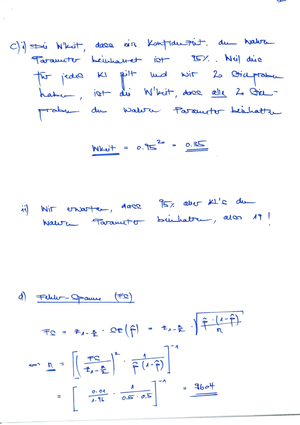 c) i) Die W'keit, dass ein Konfidenzint. den wahren
Parameter beinhaltet ist 95%. Weil dies
für jedes KI gilt und wir 20 Stichproben
haben, ist die W'keit, dass alle 20 Stich-
proben den wahren Parameter beinhalten
W'keit = 0.95^20 = 0.35
ii) Wir erwarten, dass 95% aller KI's den
wahren Parameter beinhalten, also 19!
d) Fehler-Spanne (FS)
FS = z_{1-α/2} · SE(p̂) = z_{1-α/2} · √(p̂·(1-p̂)/n)
n = [(FS/z_{1-α/2})² · 1/(p̂(1-p̂))]^{-1}
= [0.01/1.96 · 1/(0.5·0.5)]^{-1} = 9604